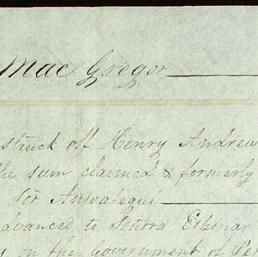 Mac Gregor
struck off Henry Andrew
the sum claimed & formerly
for Anwategui
advanced to Señora
on the Government of Per